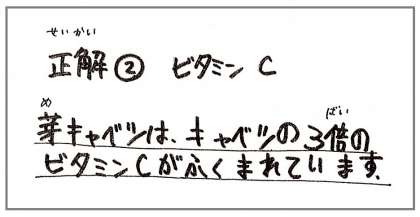 せいかい
正解② ビタミン C
め ばい
芽キャベツは、キャベツの3倍の
ビタミンCがふくまれています。